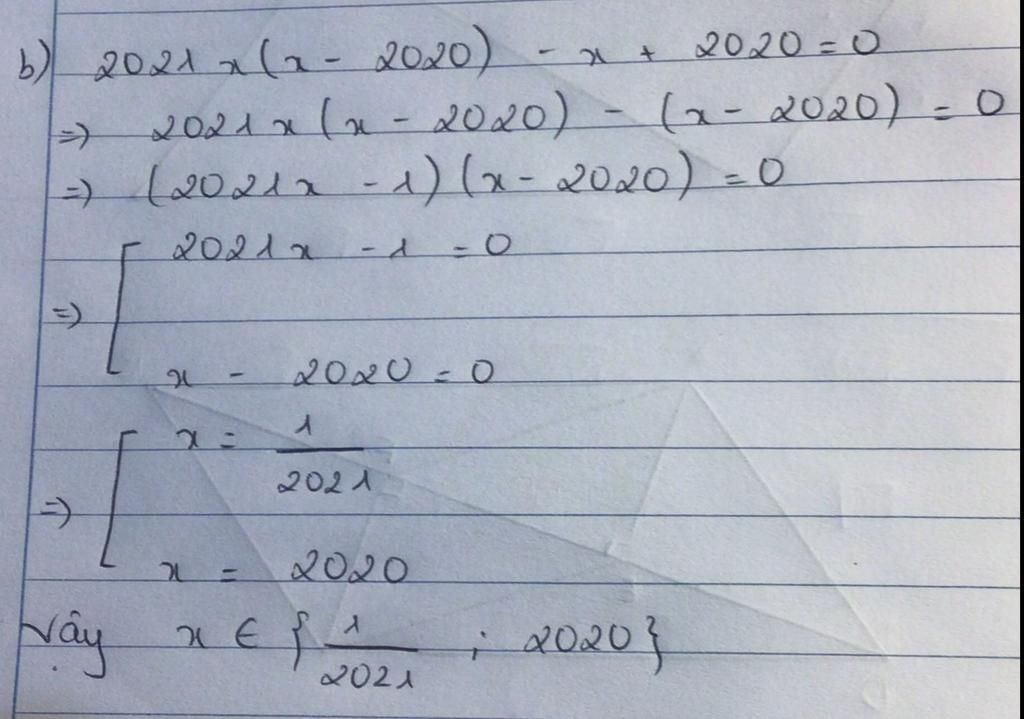 b) 2021x(x - 2020) - x + 2020 = 0
=> 2021x(x - 2020) - (x - 2020) = 0
=> (2021x - 1)(x - 2020) = 0
=> [ 2021x - 1 = 0
x - 2020 = 0
=> [ x = 1/2021
x = 2020
Vậy x ∈ {1/2021 ; 2020}